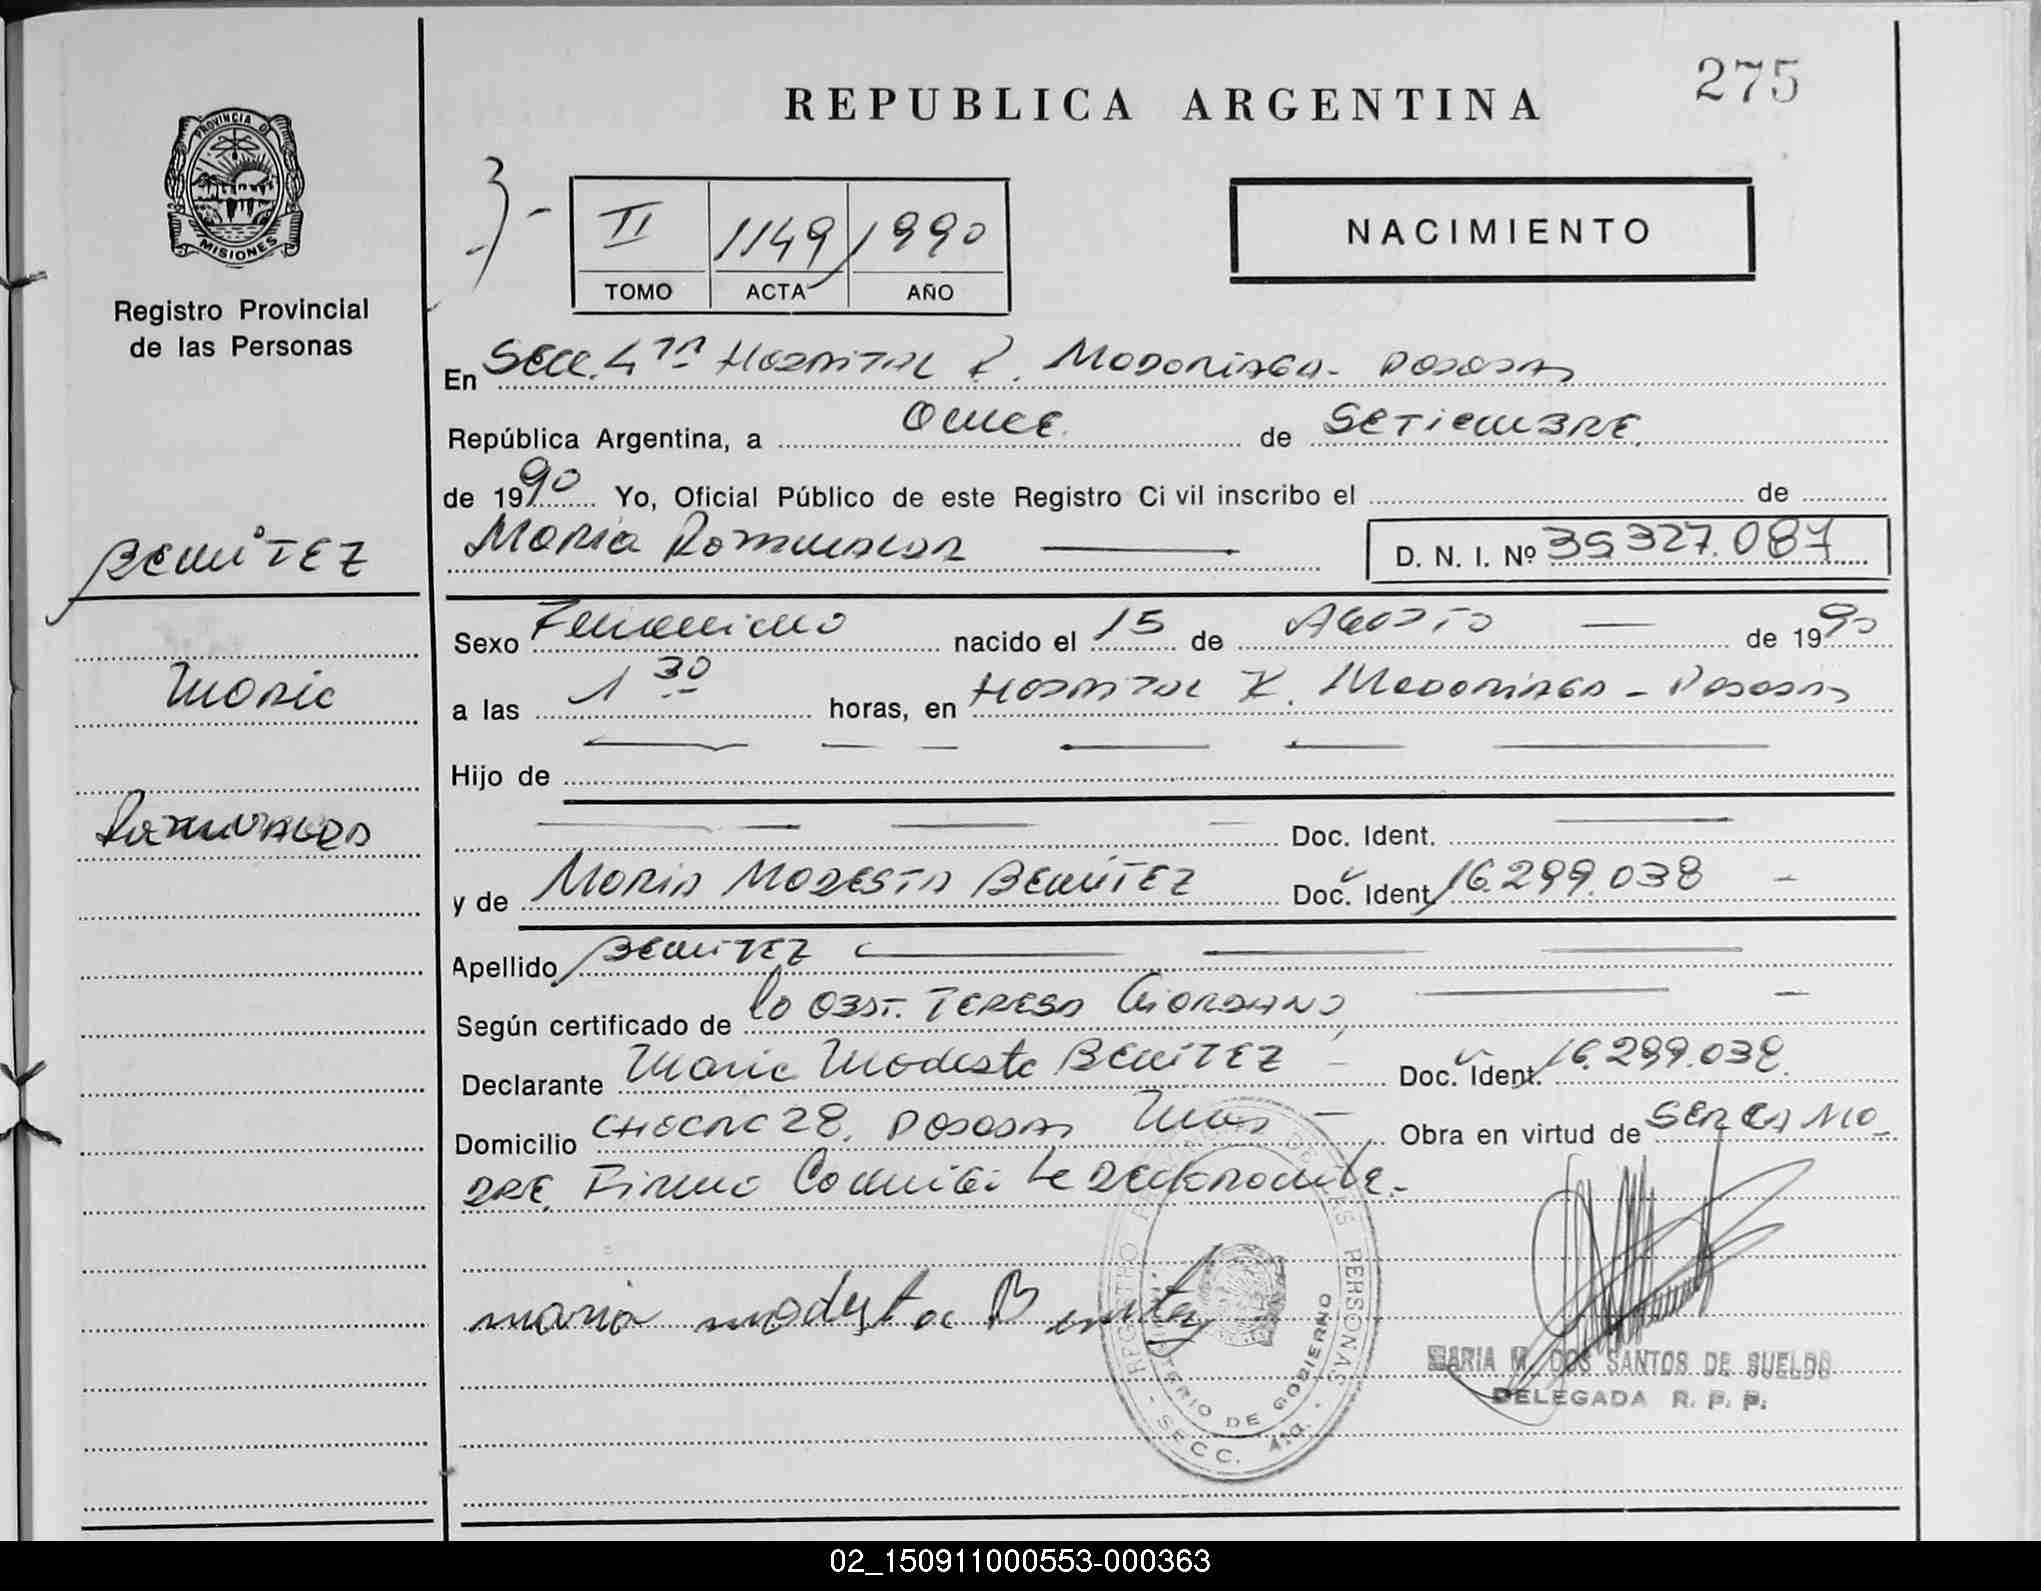 275
REPUBLICA ARGENTINA
PROVINCIA DE
MISIONES
Registro Provincial
de las Personas
3)-
II 1149 1990
TOMO ACTA AÑO
NACIMIENTO
En SECC. 4ta HOSPITAL R. MADARIAGA - POSADAS
República Argentina, a ONCE de SETIEMBRE
de 1990 Yo, Oficial Público de este Registro Civil inscribo el de
BENITEZ
Maria
ROMUALDA
MARIA ROMUALDA D. N. I. Nº 35327.087
Sexo Femenino nacido el 15 de AGOSTO de 1990
a las 1 30 horas, en HOSPITAL R. MADARIAGA - POSADAS
Hijo de
Doc. Ident.
y de MARIA MODESTA BENITEZ Doc. Ident. 16.299.038 -
Apellido BENITEZ
Según certificado de la OBST. TERESA GIORDANO
Declarante Maria Modesta BENITEZ - Doc. Ident. 16.299.038
Domicilio CHACRA 28. POSADAS Mnes - Obra en virtud de SER LA MA
DRE. Firma Conmigo la declarante.-
maria modesta Benitez
REGISTRO PROVINCIAL DE LAS PERSONAS
MINISTERIO DE GOBIERNO
- SECC. 4ta. -
MARIA M. DOS SANTOS DE SUELDO
DELEGADA R. P. P.
02_150911000553-000363